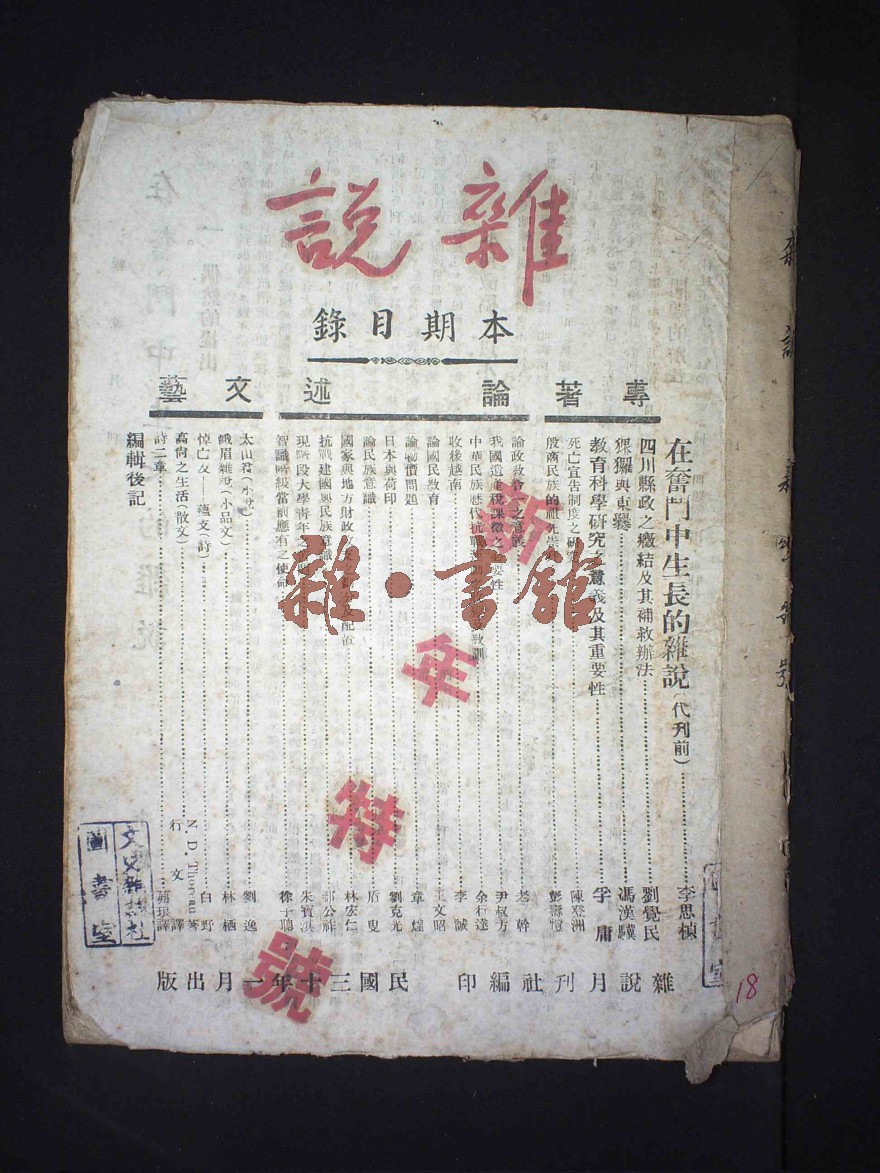 雜說
本期目錄
專著
論述
文藝
在奮鬥中生長的雜說(代刊前)……李思楨
四川縣政之癥結及其補救辦法……劉覺民
猓玀與東爨……馮漢驥
教育科學研究之意義及其重要性……李庸
死亡宣告制度之研究……陳登洲
殷商民族的祖先崇拜……彭壽愷
論政教合一之意義……老幹
我國遺產稅課徵之必要性……尹叔方
中華民族歷代抗戰……教訓……余行達
收後越南……李誠
論國民教育……王文昭
論物價問題……章煌
日本與荷印……劉克光
論民族意識……盾叟
國家與地方財政……配置……林宏仁
抗戰建國與民族意識……公祚
現階段大學青年之……朱寶淇
智識階級當前應有之使命……徐子聰
太山君(小說)……劉逸
峨眉雜說(小品文)……林栖
悼亡友——蘊文(詩)……白野
高尚之生活(散文)……N. D. 著 行文譯
詩二章……譯
編輯後記
新年特號
雜說月刊社編印
民國三十年一月出版
雜·書館
文史雜誌社
圖書室
18